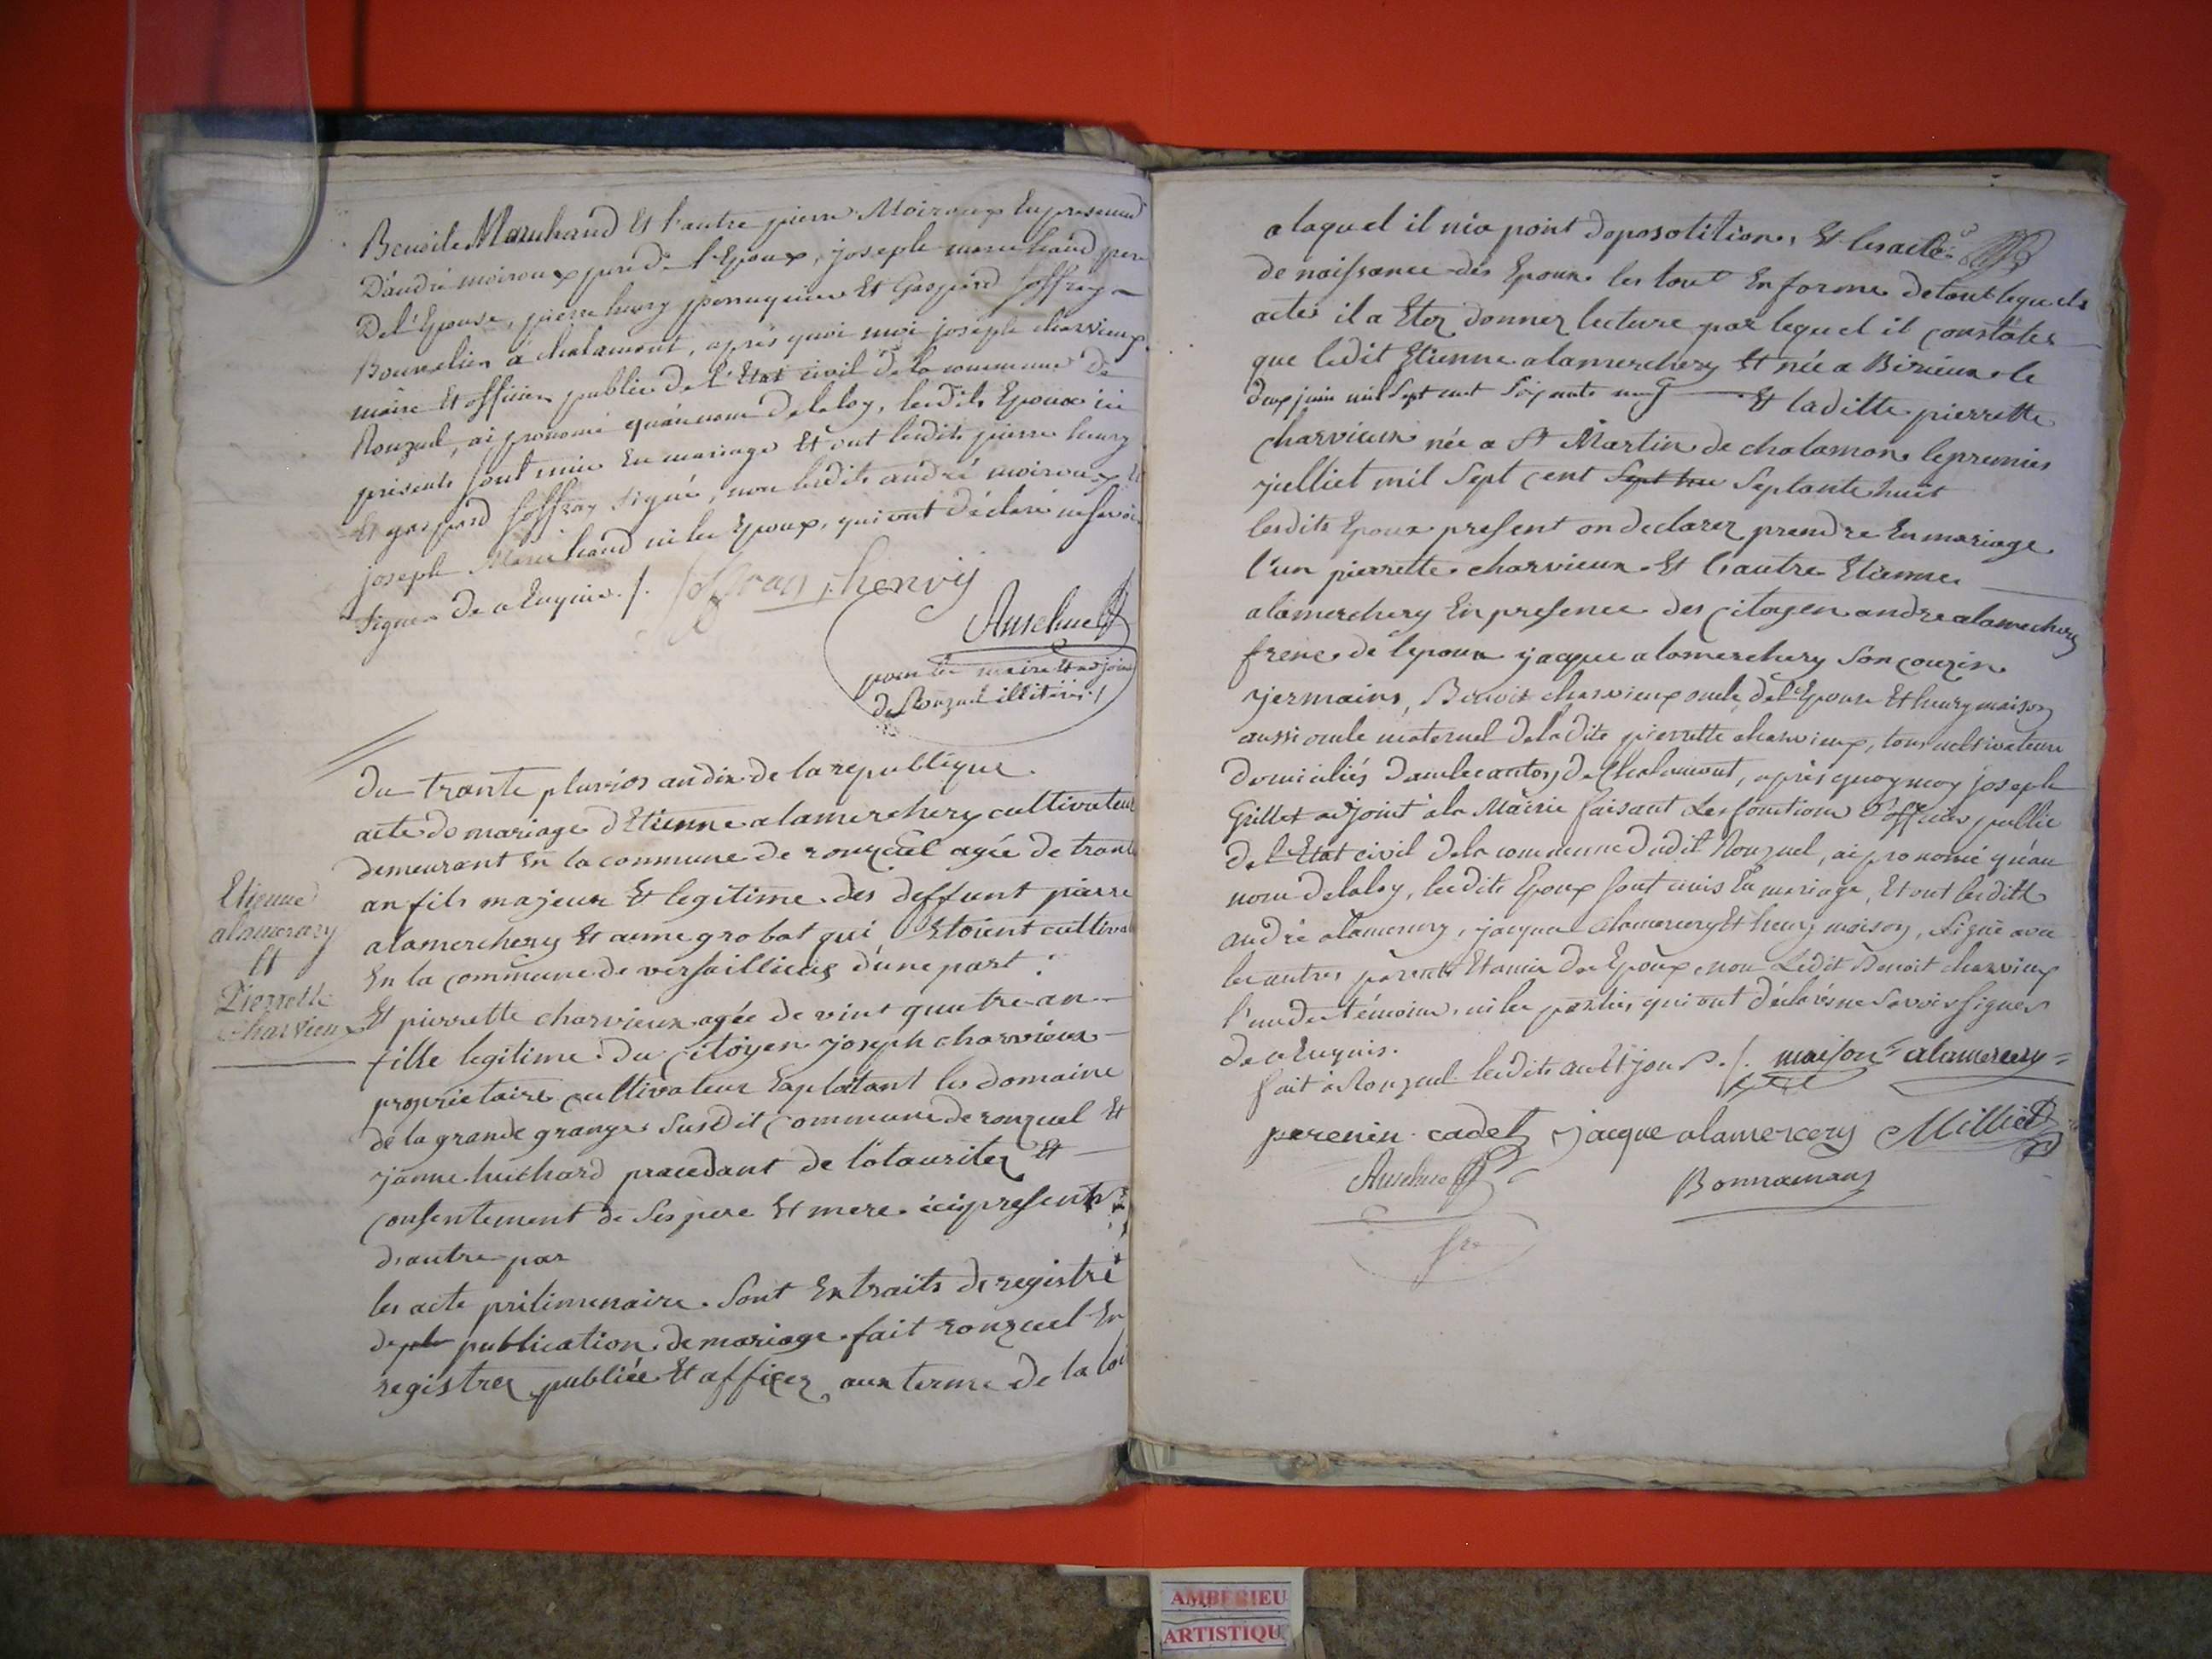 Benoite Marchand Et l'autre pierre Moiroux En presence
D'andré moiroux pere de l'Epoux, joseph marchand pere
De l'Epouse, pierre henry perruquier Et Gaspard joffray
Bourrelier a chalamont, après quoi moi joseph charvieux
maire Et officier public de l'Etat civil de la commune de
Ronzuel, ai prononcé qu'au nom de la loy, lesdits Epoux ici
présents sont unis En mariage Et ont lesdits pierre henry
Et gaspard joffray signés, non lesdits andré moiroux Et
joseph Marchand ni les Epoux, qui ont déclaré ne savoir
signer de a Enquis ./. joffray henry
Anselme
pour les maire Et adjoint
de Ronzuel illitéré ./
du trante pluvios an dix de la republique
acte de mariage d'Etienne alamerchery cultivateur
demeurant En la commune de ronzuel agée de trante
an fils majeur Et legitime des deffunt pierre
alamerchery Et anne grobat qui Etoient cultiva
En la commune de versaillieux d'une part :
Et pierrette charvieux agée de vint quatre an
fille legitime du Citoyen joseph charvieux
proprietaire cultivateur Exploitant les domaine
de la grande grange susdit Commune de ronzuel Et
janne huchard procedant de lotauritez Et
Consentement de ses pere Et mere ici present
d'autre par
les acte prilimenaire sont Extraits de registre
de pb publication de mariage fait ronzuel En
registrez publiée Et affixez aux terme de la loi
Etienne
alamercery
Et
Pierrette
Charvieux
a laquel il nia point doposotition, Et les acte
de naissance des Epoux les tout En forme de tout lequels
acte il a Etez donnez lecture par lequel il constates
que ledit Etienne alamerchery Et née a Birieux le
deux juin mil sept cent soixante neuf Et laditte pierrette
charvieux née a St Martin de chalamon le premier
julliet mil sept cent sept hu septante huit
lesdits Epoux present on declarez prendre En mariage
l'un pierrette charvieux Et l'autre Etienne
alamerchery En presence des Citoyen andre alamerchery
frere de l'epoux jacque alamerchery son couzin
jermains, Benoit charvieux oncle de l'Epouse Et henry maison
aussi oncle maternel de la dite pierrette charvieux, tous cultivateurs
domiciliés dans le canton de Chalamont, après quoy moy joseph
Grillet adjoint à la Mairie faisant les fonctions d'officier public
de l'Etat civil de la commune dudit Ronzuel, ai prononcé qu'au
nom de la loy, lesdits Epoux sont unis En mariage, Et ont lesdits
andré alamercery, jacque alamercery Et henry maison, signé avec
les autres parents Et amis des Epoux, non Ledit Benoit charvieux
l'un des témoins, ni les parties qui ont déclarés ne savoir signer
de a Enquis.
fait à Ronzuel lesdits an Et jour ./. maison alamercery
perenin cadet jacque alamercery Milliet
Anselme Bonnamans
sre
AMBERIEU
ARTISTIQU